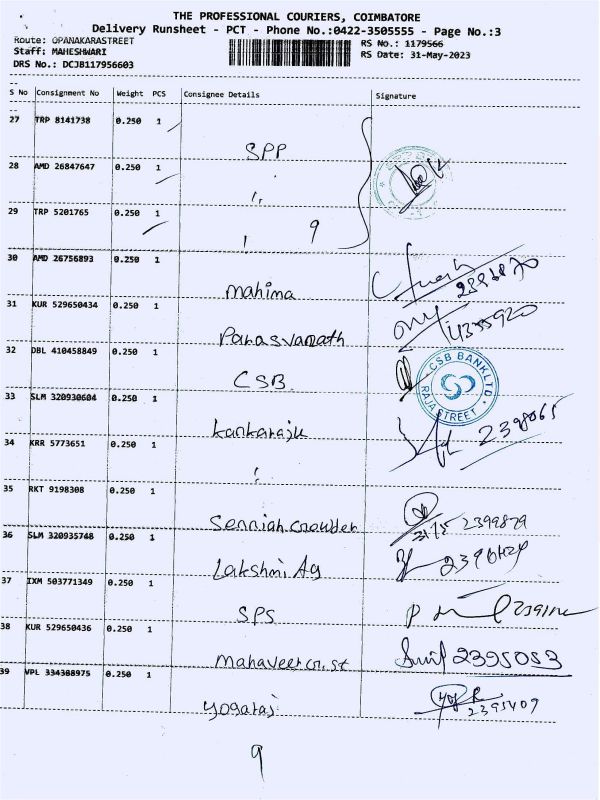 THE PROFESSIONAL COURIERS, COIMBATORE
Delivery Runsheet - PCT - Phone No.:0422-3505555 - Page No.:3
Route: OPANAKARASTREET
RS No.: 1179566
Staff: MAHESHWARI
RS Date: 31-May-2023
DRS No.: DCJB117956603
S No Consignment No Weight PCS Consignee Details Signature
27 TRP 8141738 0.250 1
SPP
28 AMD 26847647 0.250 1
29 TRP 5201765 0.250 1
9
30 AMD 26756893 0.250 1
Mahima
31 KUR 529650434 0.250 1
Parasvanath
32 DBL 410458849 0.250 1
CSB
CSB BANK LTD.
RAJA STREET
33 SLM 320930604 0.250 1
Kankaraju 2398065
34 KRR 5773651 0.250 1
35 RKT 9198308 0.250 1
Senniah Crowder 31/5 2399879
36 SLM 320935748 0.250 1
Lakshmi Ag
37 IXM 503771349 0.250 1
SPS
38 KUR 529650436 0.250 1
Mahaveer 2395053
39 VPL 334308975 0.250 1
Yogaraj 2395409
9